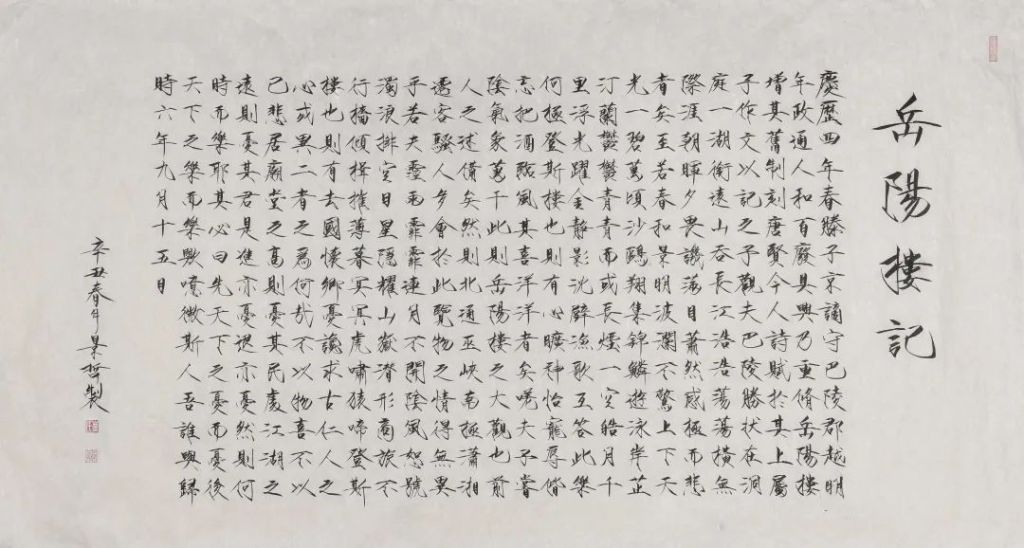 岳陽樓記
慶歷四年春滕子京謫守巴陵郡越明
年政通人和百廢具興乃重脩岳陽樓
增其舊制刻唐賢今人詩賦於其上屬
子作文以記之予觀夫巴陵勝狀在洞
庭一湖銜遠山吞長江浩浩蕩蕩橫無
際涯朝暉夕畏譏蕩目蕭然感極而悲
者矣至若春和景明波瀾不驚上下天
光一碧萬頃沙鷗翔集錦鱗遊泳岸芷
汀蘭鬱鬱青青而或長煙一空皓月千
里浮光躍金静影沈璧漁歌互答此樂
何極登斯樓也則有心曠神怡寵辱偕
忘把酒臨風其喜洋洋者矣嗟夫予嘗
陰氣象萬千此則岳陽樓之大觀也前
人之述備矣然則北通巫峽南極瀟湘
遷客騷人多會於此覽物之情得無異
乎若夫霪雨霏霏連月不開陰風怒號
濁浪排空日星隱耀山嶽潛形商旅不
行檣傾楫摧薄暮冥冥虎嘯猿啼登斯
樓也則有去國懷鄉憂讒求古仁人之
心或異二者之爲何哉不以物喜不以
己悲居廟堂之高則憂其民處江湖之
遠則憂其君是進亦憂退亦憂然則何
時而樂耶其必曰先天下之憂而憂後
天下之樂而樂歟噫微斯人吾誰與歸
時六年九月十五日
辛丑春月製